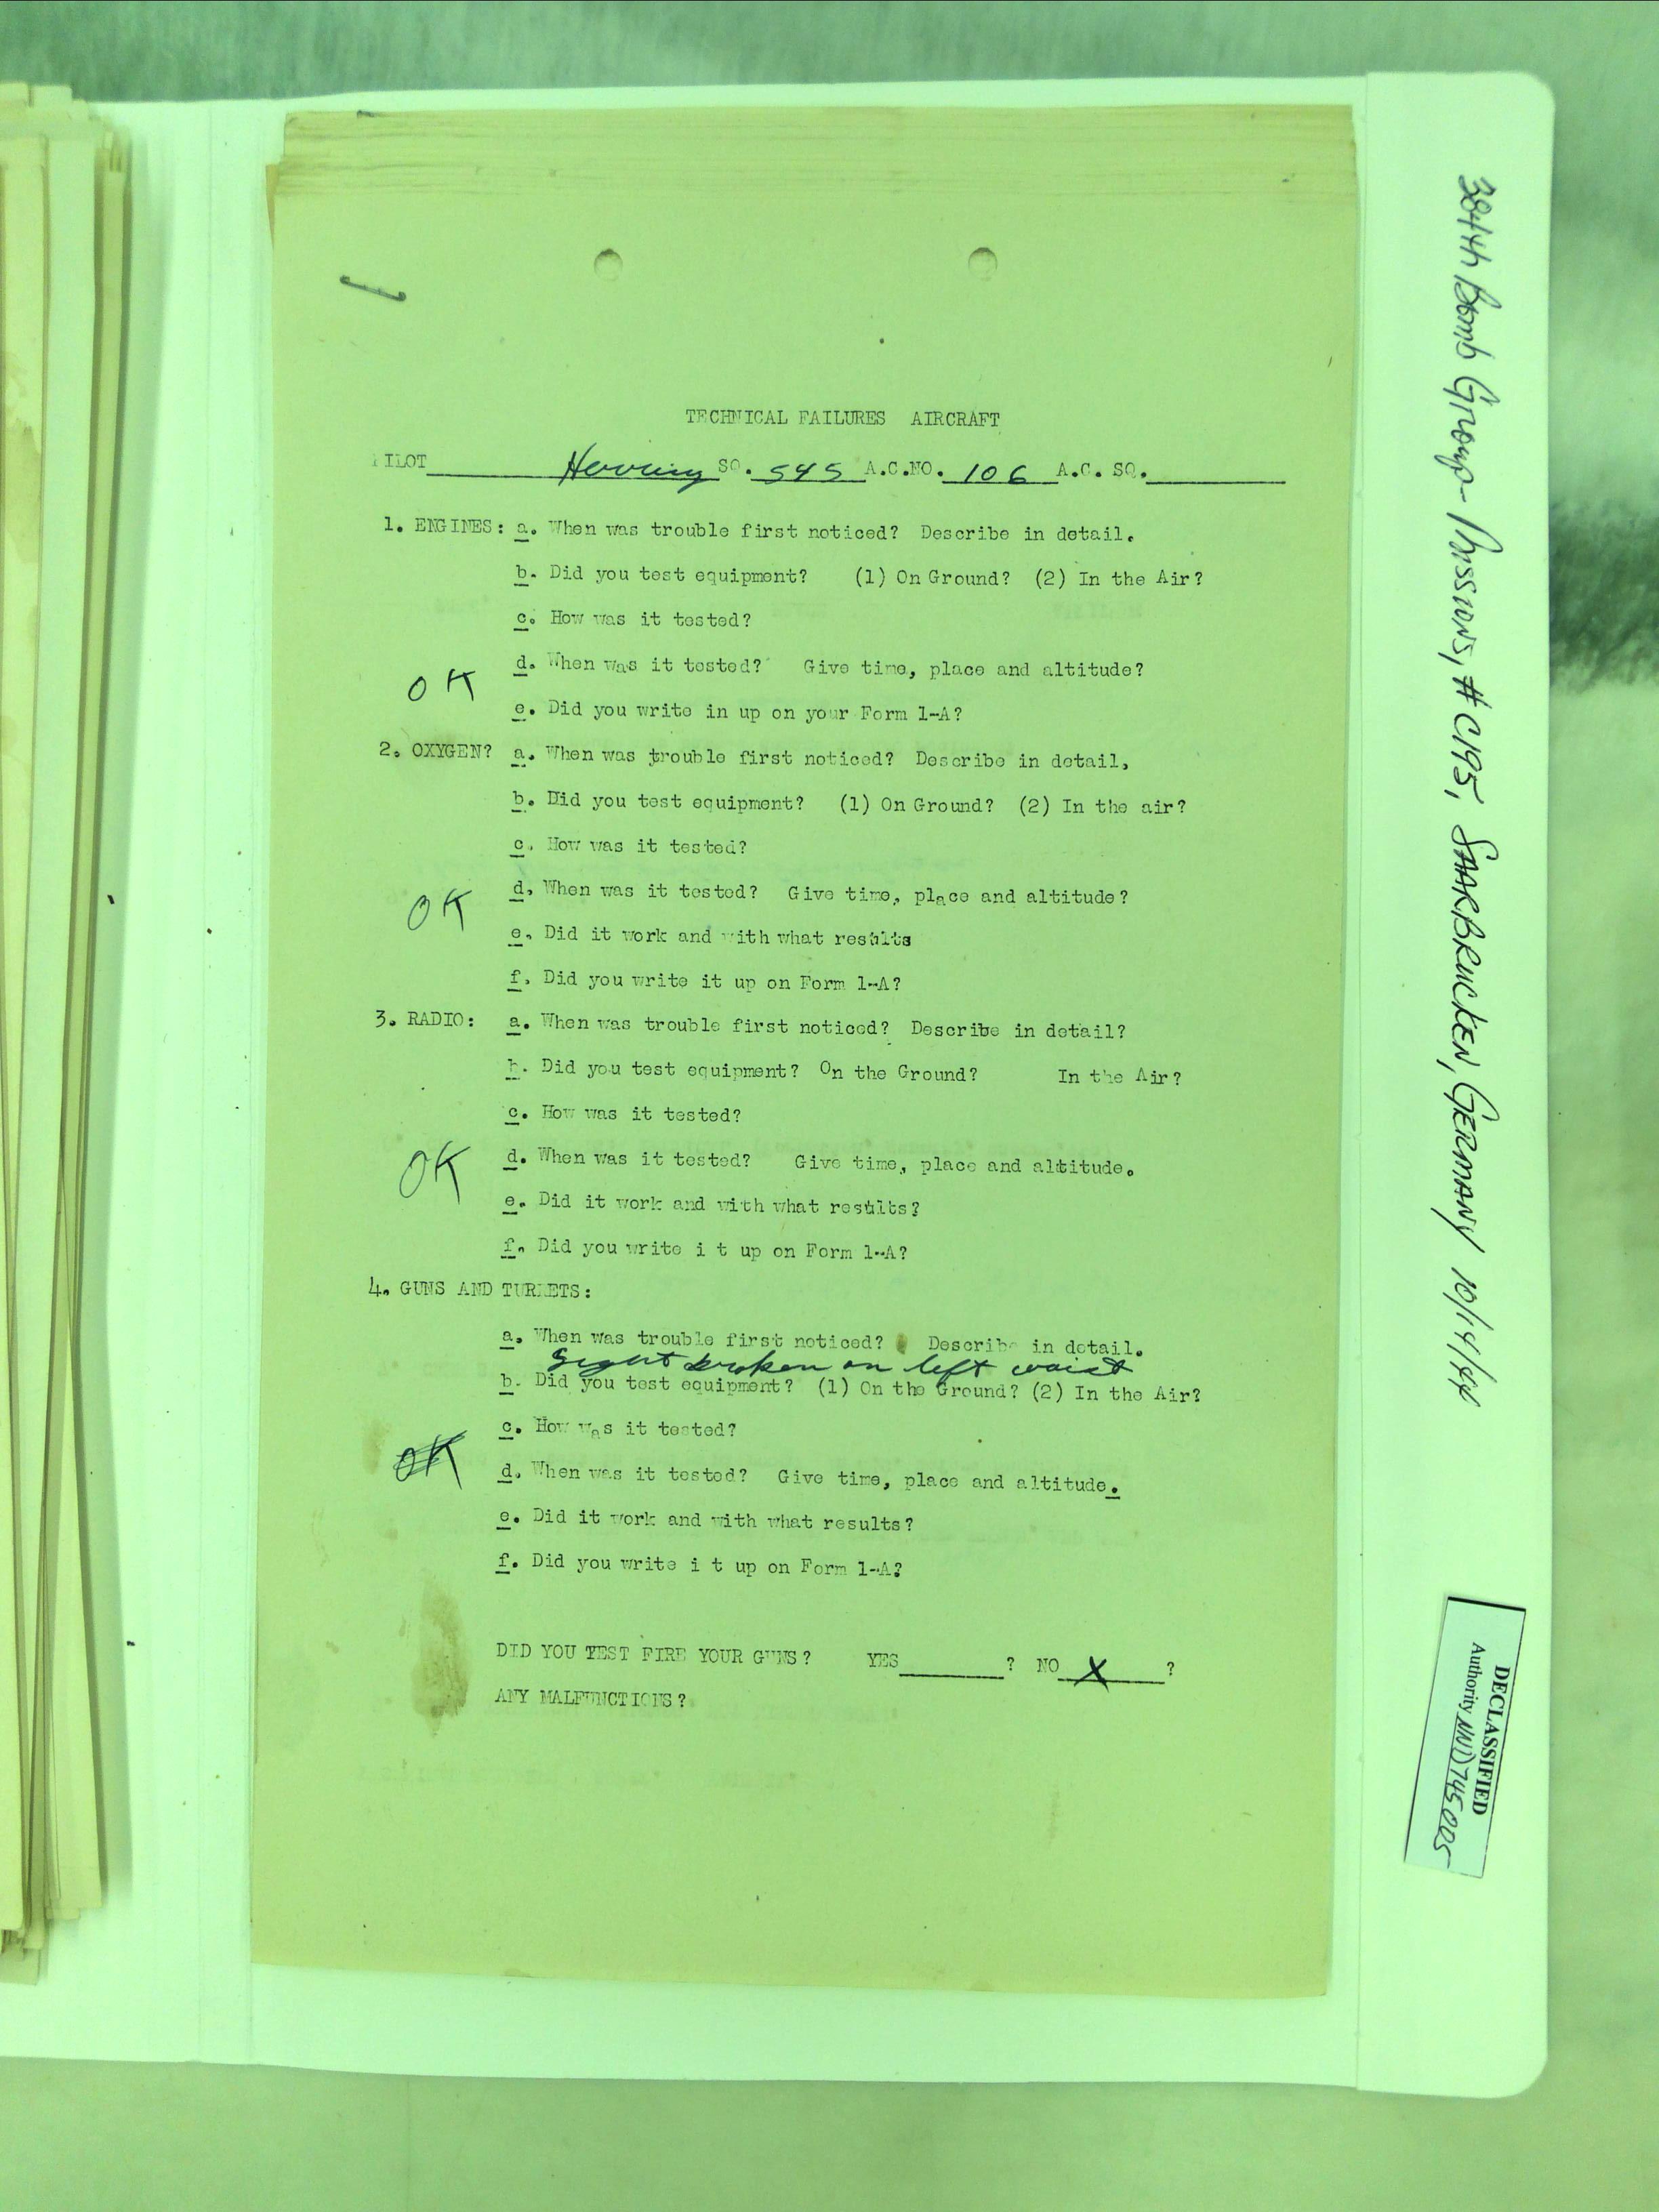 TECHNICAL FAILURES AIRCRAFT
PILOT Herring SQ. 545 A.C.NO. 106 A.C. SQ.
1. ENGINES: a. When was trouble first noticed? Describe in detail.
b. Did you test equipment? (1) On Ground? (2) In the Air?
c. How was it tested?
d. When was it tested? Give time, place and altitude?
OK
e. Did you write in up on your Form 1-A?
2. OXYGEN? a. When was trouble first noticed? Describe in detail,
b. Did you test equipment? (1) On Ground? (2) In the air?
c. How was it tested?
d. When was it tested? Give time, place and altitude?
OK
e. Did it work and with what results
f. Did you write it up on Form 1-A?
3. RADIO: a. When was trouble first noticed? Describe in detail?
b. Did you test equipment? On the Ground? In the Air?
c. How was it tested?
d. When was it tested? Give time, place and altitude.
OK
e. Did it work and with what results?
f. Did you write i t up on Form 1-A?
4. GUNS AND TURRETS:
a. When was trouble first noticed? Describe in detail.
Sight broken on left waist
b. Did you test equipment? (1) On the Ground? (2) In the Air?
c. How was it tested?
OK
d. When was it tested? Give time, place and altitude.
e. Did it work and with what results?
f. Did you write i t up on Form 1-A?
DID YOU TEST FIRE YOUR GUNS? YES ? NO X ?
ANY MALFUNCTIONS?
384th Bomb Group - Missions, # C195, SAARBRUCKEN, GERMANY 10/14/44
DECLASSIFIED
Authority NND745005